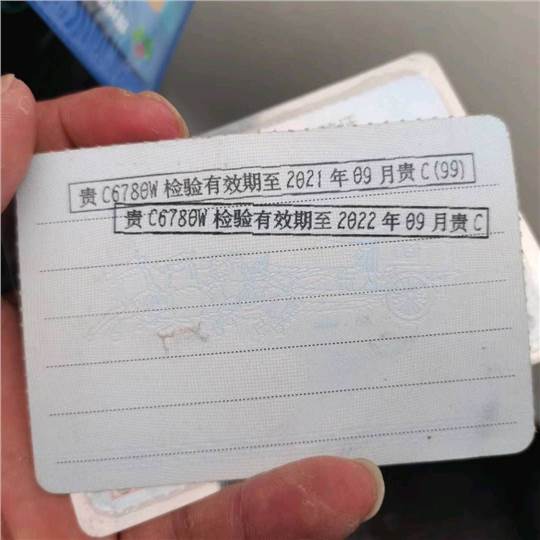 贵 C6780W 检验有效期至 2021 年 09 月贵 C(99)
贵 C6780W 检验有效期至 2022 年 09 月贵 C